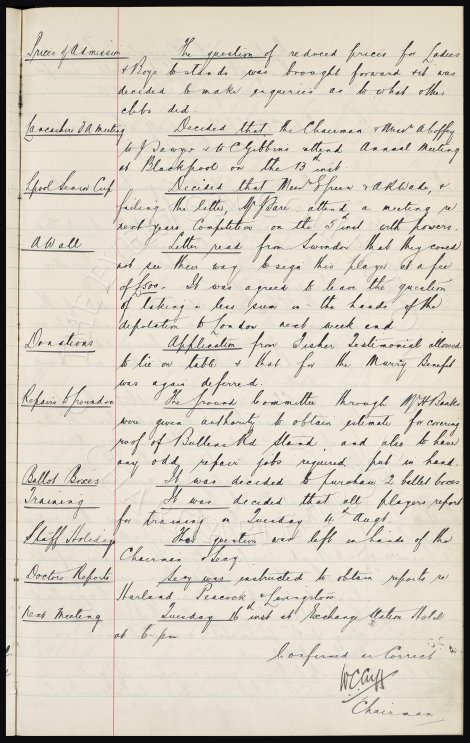 Prices of Admission The question of reduced prices for Ladies
& Boys to stands was brought forward & it was
decided to make enquiries as to what other
clubs did.
Lancashire F A meeting Decided that the Chairman & Messrs A Coffey
W J Sawyer & W C Gibbins attend Annual Meeting
at Blackpool on the 13th inst
Lpool Senior Cup Decided that Messrs & A R Wade, &
failing the letter, Mr attend a meeting re
next years Competition on the 3rd inst with powers.
A Wall Letter read from Swindon that they could
not see their way to sign this player at a fee
of £500. It was agreed to leave the question
of taking a less sum in the hands of the
deputation to London next week end
Donations Application from Fisher Testimonial allowed
to lie on table & that for the Murry Benefit
was again deferred.
Repairs to Ground The Ground Committee through Mr H Banks
were given authority to obtain estimate for covering
roof of Bullens Rd Stand and also to have
any odd repair jobs required put in hand.
Ballot Boxes It was decided to purchase 2 ballot boxes
Training It was decided that all players report
for training on Tuesday 4th Augt.
Staff Holidays The question was left in hands of the
Chairman & Secy.
Doctors Reports Secy was instructed to obtain reports re
Harland Peacock & Livingston
Next Meeting Tuesday 16th inst at Exchange Station Hotel
at 6 pm
Confirmed as Correct
W.C. Cuff
Chairman